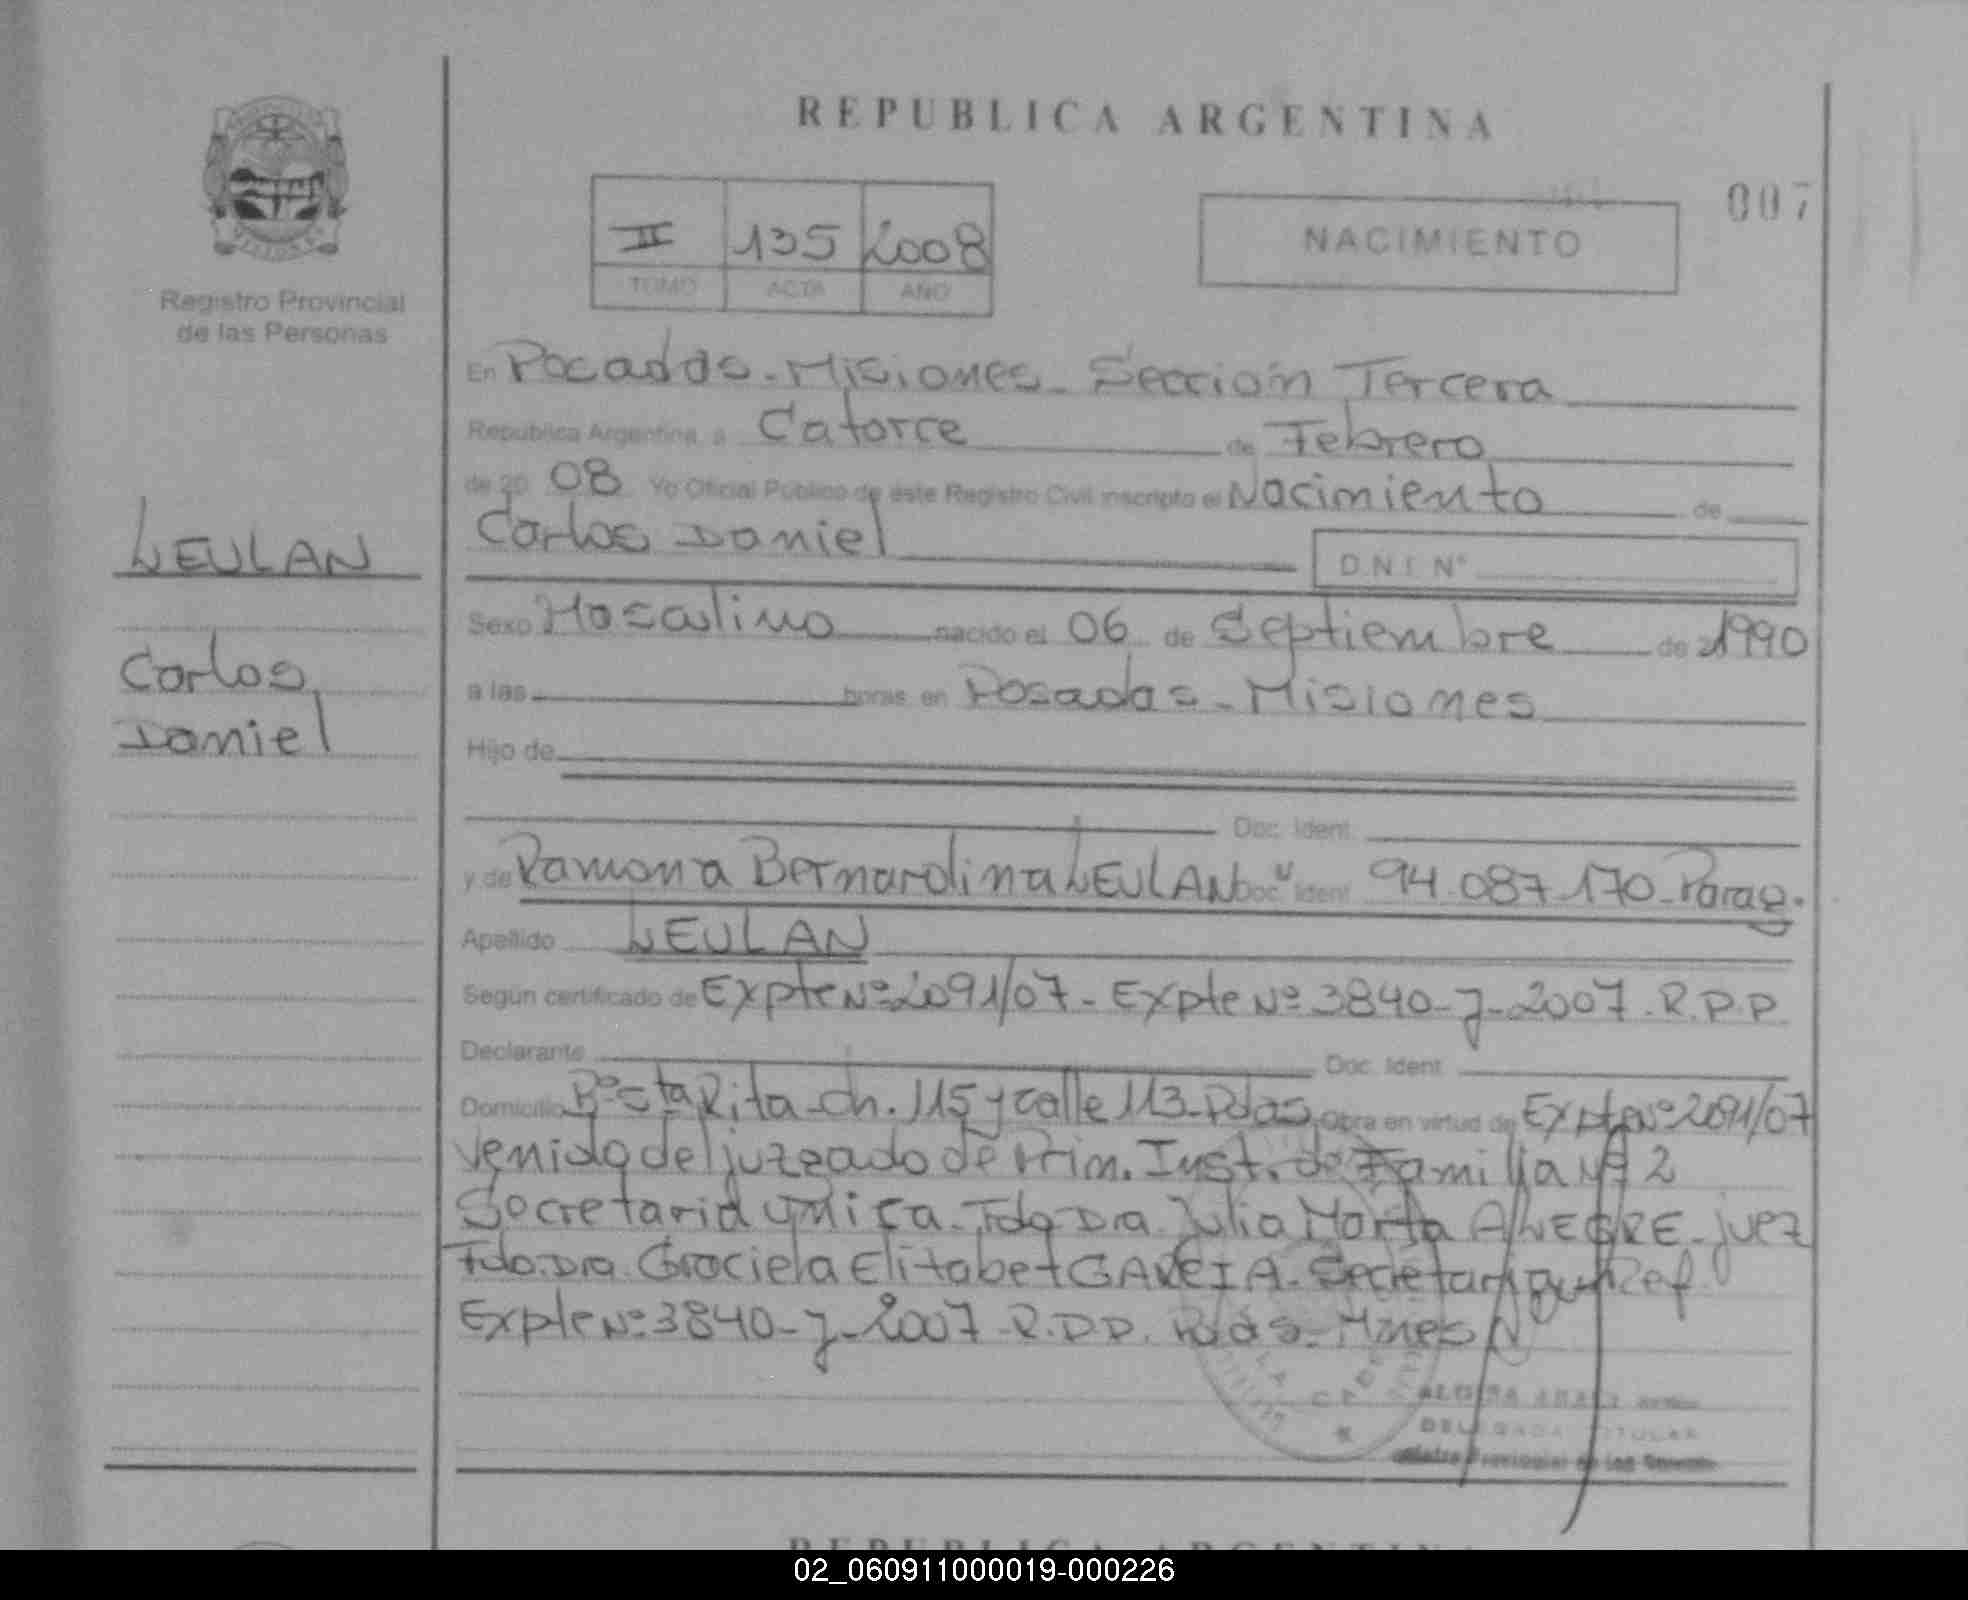 REPUBLICA ARGENTINA
007
II 135 2008
TOMO ACTA AÑO
NACIMIENTO
Registro Provincial
de las Personas
LEULAN
Carlos
Daniel
En Posadas - Misiones - Sección Tercera
Republica Argentina, a Catorce de Febrero
de 20 08 Yo Oficial Público de este Registro Civil inscripto el Nacimiento de
Carlos Daniel D.N.I. N°
Sexo Masculino nacido el 06 de Septiembre de 1990
a las horas en Posadas - Misiones
Hijo de
Doc. Ident.
y de Ramona Bernardina LEULAN Doc. Ident. 94.087.170 - Parag.
Apellido LEULAN
Según certificado de Expte Nº 2091/07 - Expte Nº 3840-J-2007. R.P.P
Declarante Doc. Ident.
Domicilio Bº Sta Rita - ch. 115 y calle 113 - Pdas Obra en virtud de Expte Nº 2091/07
venido del juzgado de Prim. Inst. de Familia Nº 2
Secretaria Unica. Fdo Dra. Julia Marta ALEGRE - juez
Fdo. Dra. Graciela Elizabet GARCIA. Secretaria Ref.
Expte Nº 3840-J-2007-R.P.P. Pdas - Mnes
DELEGADA TITULAR
Provincial de las
REPUBLICA ARGENTINA
02_060911000019-000226